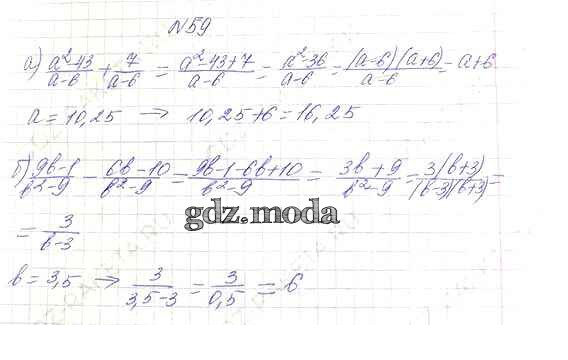 №59
а) (a²-43)/(a-6) + 7/(a-6) = (a²-43+7)/(a-6) = (a²-36)/(a-6) = (a-6)(a+6)/(a-6) = a+6
a = 10,25 → 10,25+6=16,25
б) (9b-1)/(b²-9) - (6b-10)/(b²-9) = (9b-1-6b+10)/(b²-9) = (3b+9)/(b²-9) = 3(b+3)/((b-3)(b+3)) =
gdz.moda
= 3/(b-3)
b = 3,5 → 3/(3,5-3) = 3/0,5 = 6